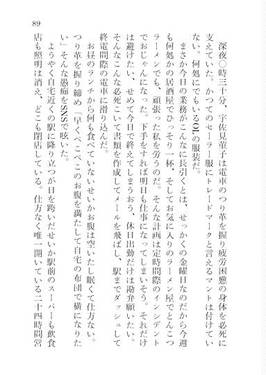 89
深夜〇時三十分、宇佐見菫子は電車のつり革を握り疲労困憊の身体を必死に
支えていた。かつてのトレーラー服にトレードマークと言えるマントは付けてい
ない、何処にでもいるOLの服装だ。
まさか今日の業務がこんなに長引くとは、せっかくの金曜日なのだから今週
も何処かの居酒屋でひっそり一杯、そしてお気に入りのラーメン屋でとんこつ
ラーメンでも、頑張った私を労うのだ。そんな計画は定時間際のインシデント
でおじゃんになった。下手をすれば明日も仕事になってしまいそう。それだけ
は避けたい、せめて今日終えてしまおう、休日出勤だけは勘弁願いたい。
そんなこんなで必死こいて資料を作成してメールを飛ばし、駅までダッシュして
終電間際の電車に滑り込んだ。
お昼のランチから何も食べていないせいかお腹は空いたし眠くて仕方ない。
つり革を握り締め「早くぺこぺこのお腹を満たして自宅の布団で横になりた
い」そんな愚痴をSNSで呟いた。
ようやく自宅近くの駅に降り立つが日を跨いだせい駅前のスーパーも飲食
店も照明は消え、どこも閉店している。仕方なく唯一開いている二十四時間営